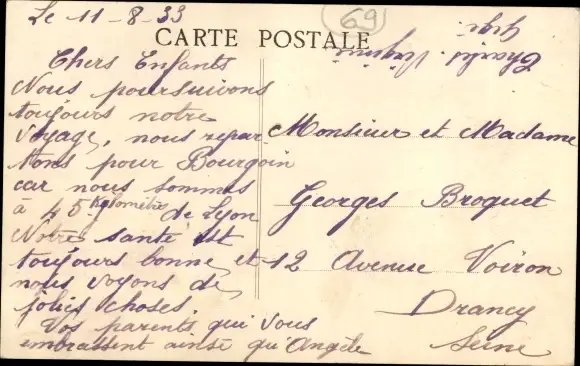 Le 11-8-33
69
CARTE POSTALE
Chers Enfants
Nous poursuivons
toujours notre
voyage, nous repar
tons pour Bourgoin
car nous sommes
à 45 kilomètre de Lyon
Notre santé est
toujours bonne et
nous voyons de
jolies choses.
Vos parents qui vous
embrassent ainsi qu'Angèle
Monsieur et Madame
Georges Broquet
12 Avenue Voiron
Drancy
Seine